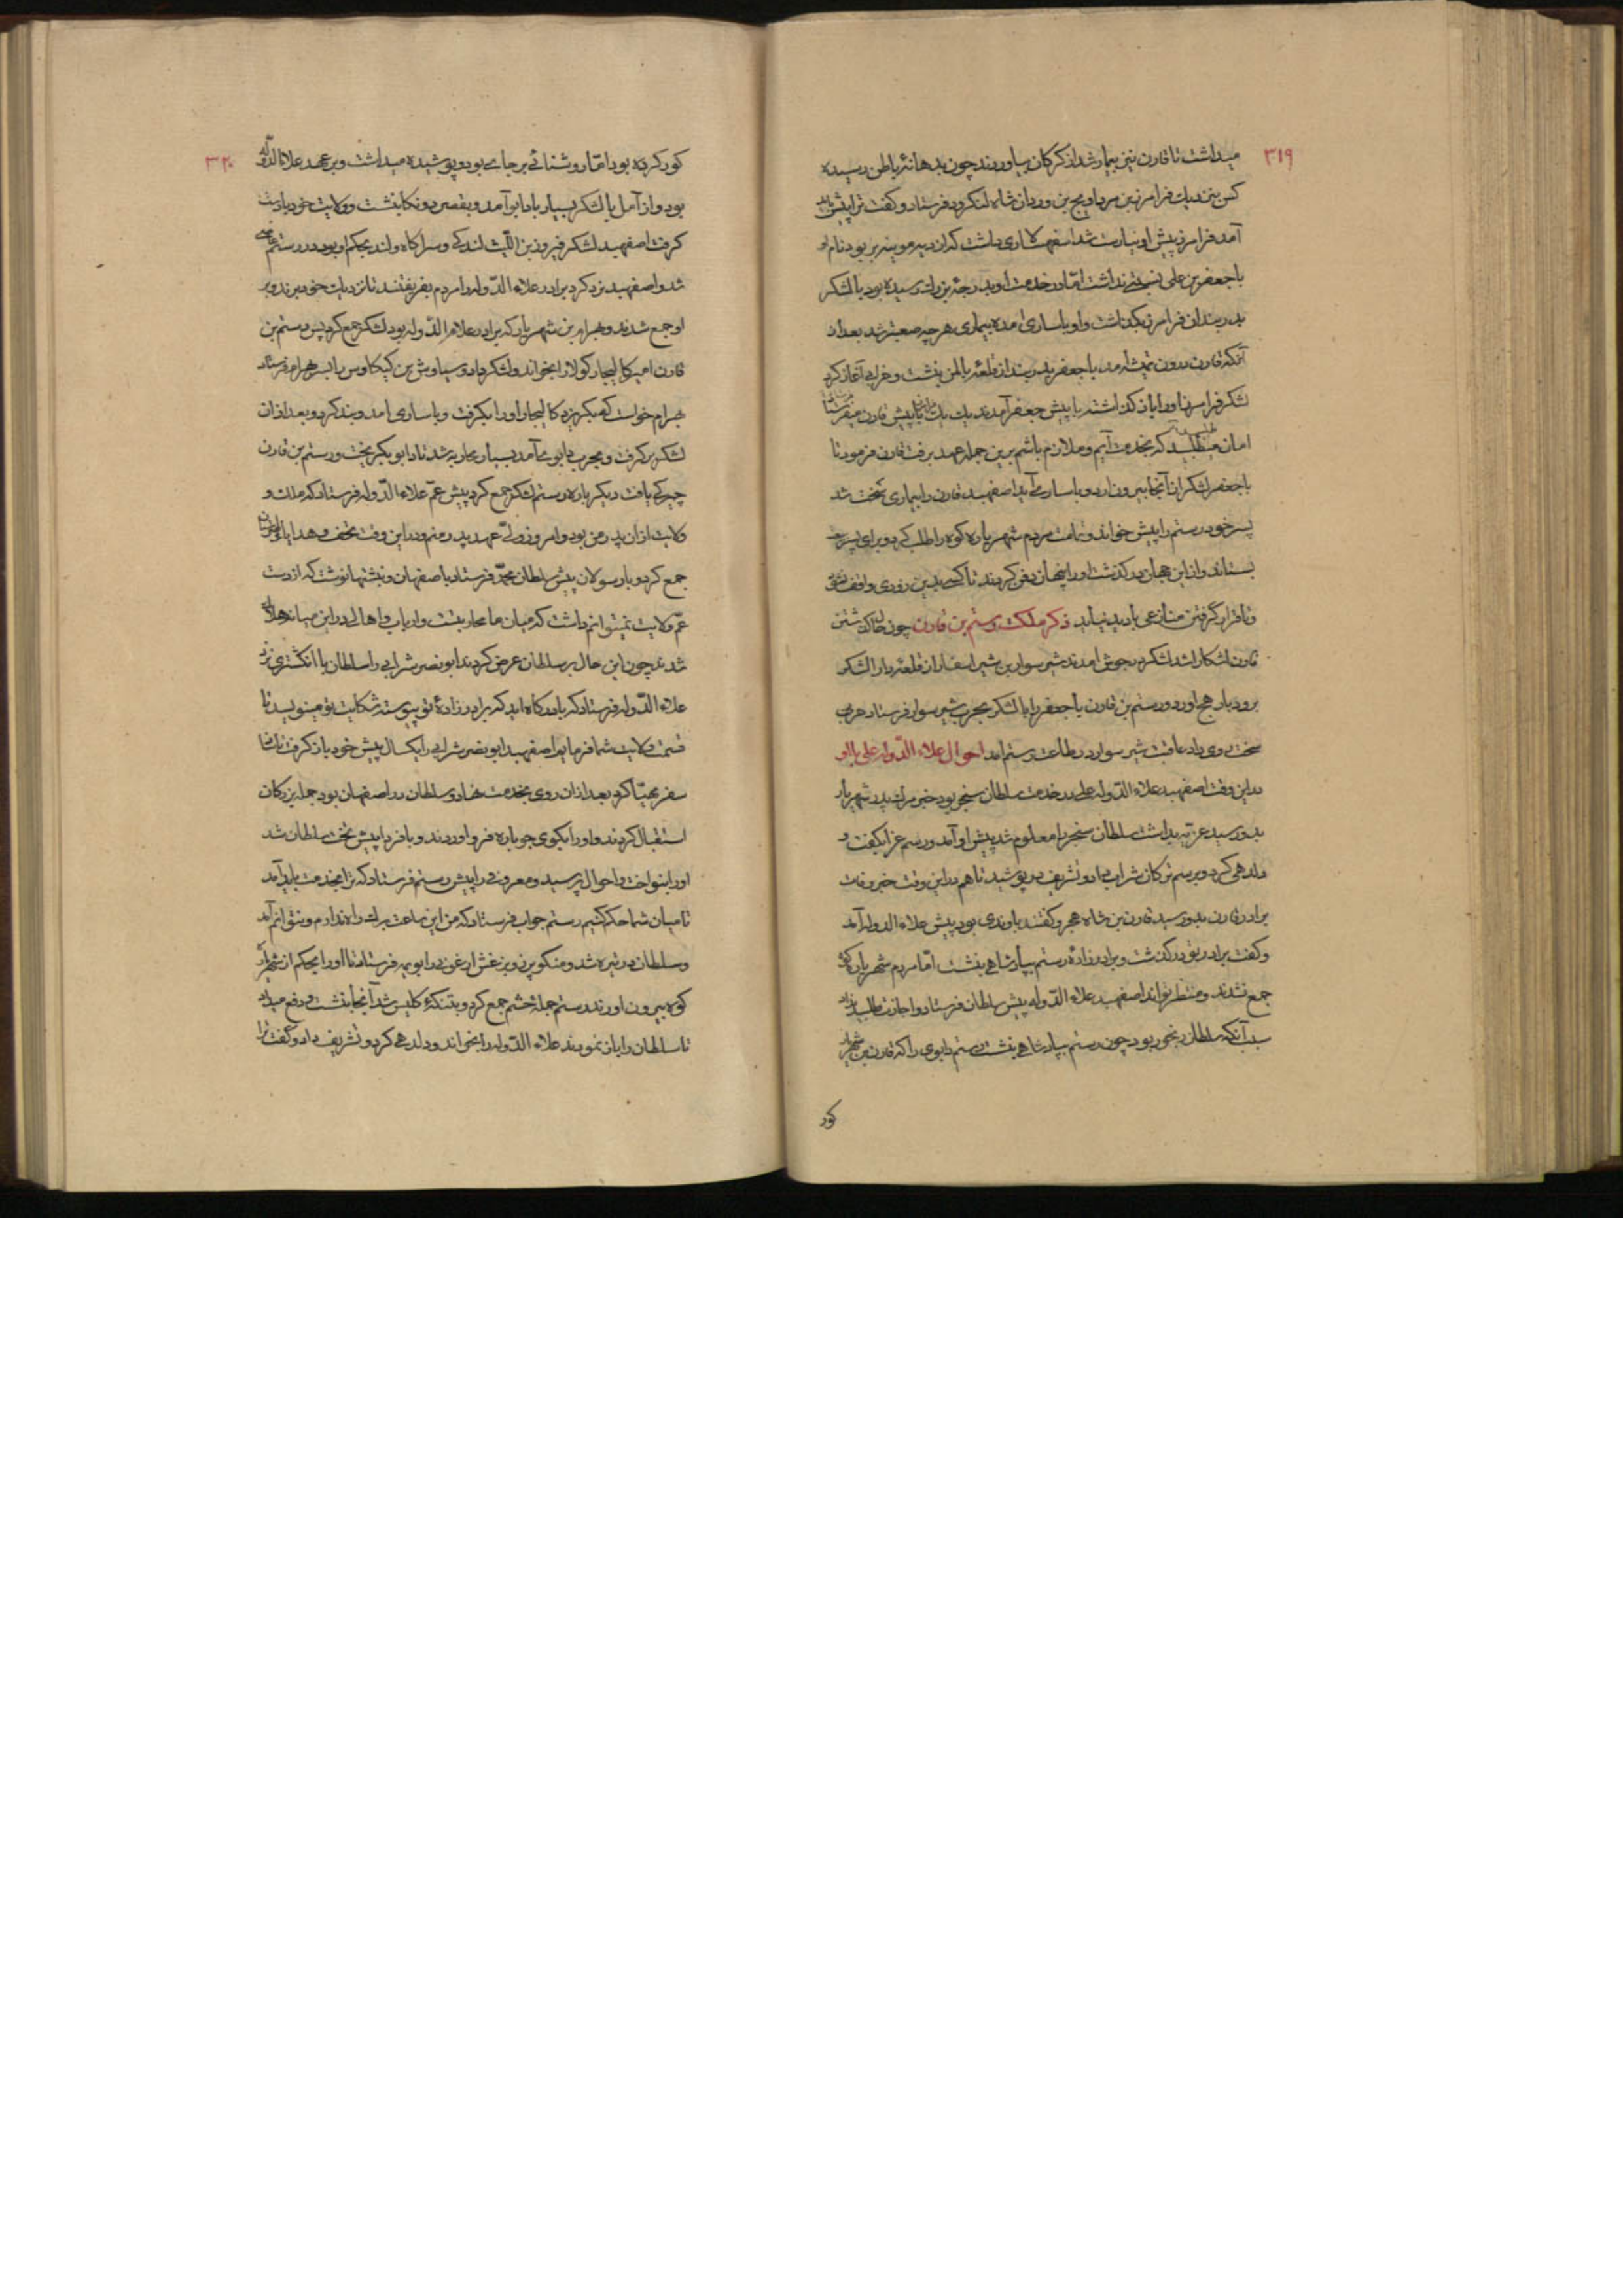 ۳۱۹
میداشت تا قارن نیز بیمار شد از کرکان بیاوردند چون بدهانۀ رباطن رسیده
کس بنزدیك فرامرز بن مرداویج بن وردان شاه لنکرود فرستاد و کفت ترا پیش باید
آمد فرامرز پیش او نیارست شد اسفهسلاری داشت که از دیه مو ینه بر بود نام او
باجعفر بن علی نسبتی نداشت امّا در خدمت او بدرجۀ بزرك رسیده بود با لشکر
بدربندان فرامرز بکذاشت و او باساری آمد بیماری هرچه صعبتر شد بعد از
آنکه قارن درون تمیشه آمد باجعفر بدربند از قلعۀ بالمن بنشت و خرابی آغاز کرد
لشکر فرامرز او را باز کذاشتند با پیش جعفر آمدند یك یك پیش قارن میفرستاد
امان میطلبید که بخدمت آیم و ملازم باشم برین جمله عهد برفت قارن فرمود تا
باجعفر لشکر از آنجا بیرون آرد و باساری آید اصفهبد قارن را بیماری سخت شد
پسر خود رستم را پیش خواند و تمامت مردم شهریاره کوه را طلب کرد و برای پسر بیعت
بستاند و از این جهان در کذشت او را پنهان دفن کردند تا کسی بدین زودی واقف نشود
و تا قرار کرفتن منازعی بادید نیاید ذکر ملکت رستم بن قارن چون حال کذشتن
قارن اشکارا شد لشکر بجوش آمدند شیرسوار بن شیراسفار از قلعۀ دارا لشکر
برودبار هج آورد و رستم بن قارن باجعفر را با لشکر بحرب شیرسوار فرستاد حربی
سخت روی داد عاقبت شیرسوار در طاعت رستم آمد احوال علاء الدوله علی با او
در این وقت اصفهبد علاء الدوله علی در خدمت سلطان سنجر بود خبر مرك پدر شهریار
بدو رسید عزیه بداشت سلطان سنجر را معلوم شد پیش او آمد و رسم عزا بکفت و
دلدهی کرد و برسم ترکان شراب داد و تشریف در پوشید تا هم در این وقت خبر وفات
برادر قارن بدو رسید قارن بن شاه هجر و کفتند باوندی بود پیش علاء الدوله آمد
و کفت برادر تو در کذشت و برادرزادۀ رستم بپادشاهی بنشت امّا مردم شهریار کوه
جمع نشدند و منتظر تواند اصفهبد علاء الدوله پیش سلطان فرستاد و اجازت طلبید نداد
سبب آنکه سلطان رنجور بود چون رستم بپادشاهی بنشت رستم دابوی را که قارن بن شهریار
کور
۳۲۰
کور کرده بود امّا روشنائی بر جای بود و پوشیده میداشت و بر عهد علاء الدوله
بود و از آمل با لشکر بسیار بادابو آمد و بقصر دونکا بنشت و ولایت خود بادست
کرفت اصفهبد لشکر فیروز بن اللیث لندکی و سراکاه ولند بحکم او بود در رستم
شد و اصفهبد یزدکرد برادر علاء الدوله را مردم بفریفتند تا نزدیك خود بردند و بر
او جمع شدند و بهرام بن شهریار که برادر علاء الدوله بود لشکر جمع کرد پس رستم بن
قارن امیر کالیجار کولا را بخواند و لشکر داد و سیاوش بن کیکاوس را بسر بهرام فرستاد
بهرام خواست که بکریزد کالیجار او را بکرفت و باساری آمد و بند کرد و بعد از آن
لشکر برکرفت و بحرب دابوی آمد بسیار محاربه شد تا دابو بکریخت و رستم بن قارن
چیرکی یافت دیکر باره رستم لشکر جمع کرد پیش عمّ علاء الدوله فرستاد که ملك و
ولایت از آن پدر من بود و امروز ولی عهد پدر منم و در این وقت تحف و هدایا
جمع کرد و با رسولان پیش سلطان محمّد فرستاد باصفهان و نبشتها نوشت که از دست
عمّ ولایت نمیتوانم داشت که میان ما محاربتست و ارباب و اهالی در این میانه هلاك
شدند چون این حال بر سلطان عرض کردند ابونصر شرابی را سلطان با انکشتری نزد
علاء الدوله فرستاد که بادرکاه آید که برادرزادۀ تو پیوسته شکایت تو مینویسد تا
قسمت ولایت شما فرمایم اصفهبد ابونصر شرابی را یکسال پیش خود باز کرفت تا
سفر مهیّا کرد بعد از آن روی بخدمت نهاد و سلطان در اصفهان بود جمله بزرکان
استقبال کردند و او را بکوی جوباره فرو آوردند و با فردا پیش تخت سلطان شد
او را بنواخت و احوال پرسید و معروفی را پیش رستم فرستاد که ترا بخدمت باید آمد
تا میان شما حکم کنیم رستم جواب فرستاد که من این ساعت برك راه ندارم و نتوانم آمد
و سلطان در تیره شد و منکوبرز و یرغش ارغون را بویمه فرستاد تا او را بحکم از شهریار
کوه بیرون آورند رستم جملۀ حشم جمع کرد و بتنکۀ کلیس شد آنجا بنشت و دفع میداد
تا سلطان را باز نمودند علاء الدوله را بخواند و دلدهی کرد و تشریف داد و کفت ترا